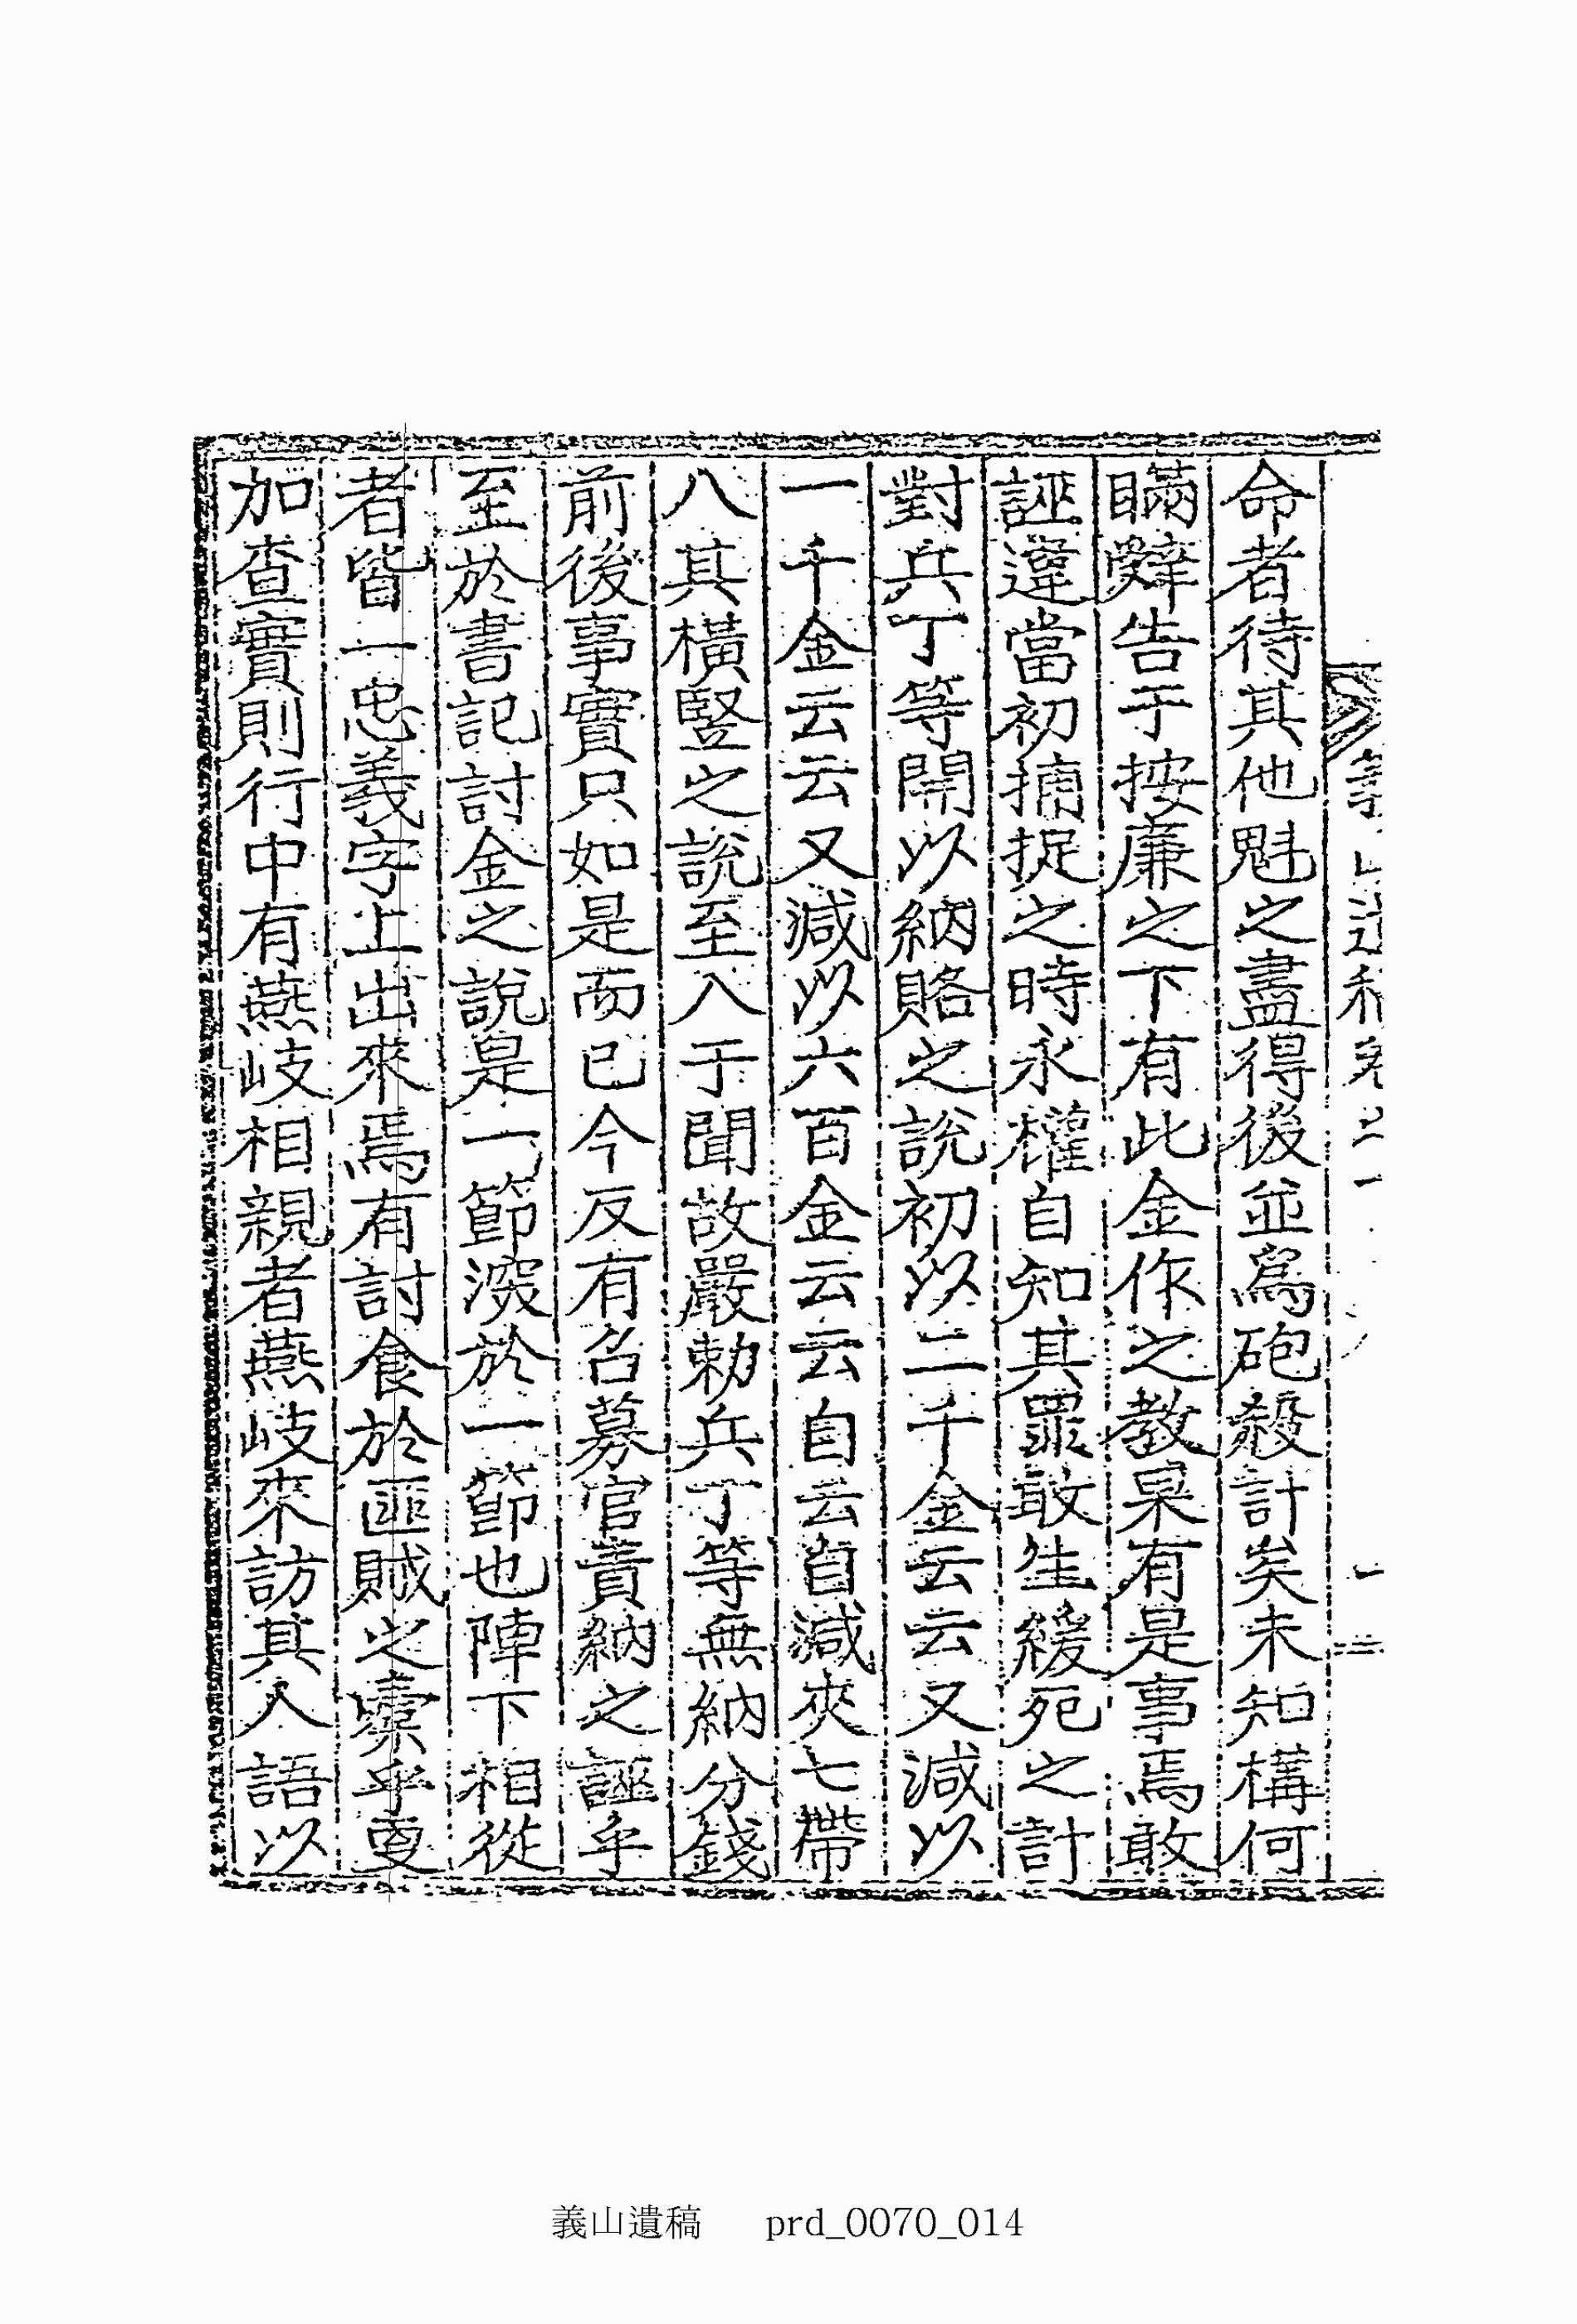 命者待其他魁之盡得後並爲砲殺計矣未知構何
瞞辭告于按廉之下有此金作之教果有是事焉敢
誣違當初捕捉之時永權自知其罪敢生緩死之計
對兵丁等開以納賂之說初以二千金云云又減以
一千金云云又減以六百金云云自云自減夾七帶
八其橫竪之說至入于聞故嚴勅兵丁等無納分錢
前後事實只如是而已今反有召募官責納之誣乎
至於書記討金之說是一節深於一節也陣下相從
者皆一忠義字上出來焉有討食於匪賊之橐乎更
加查實則行中有燕岐相親者燕岐來訪其人語以
義山遺稿 prd_0070_014